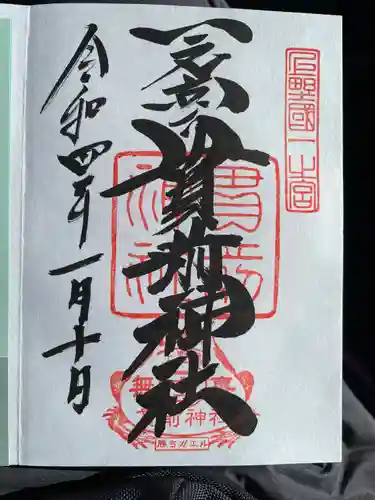 上野國一之宮
一之宮
貫前神社
令和四年一月十日
貫前神社
勝ちガエル